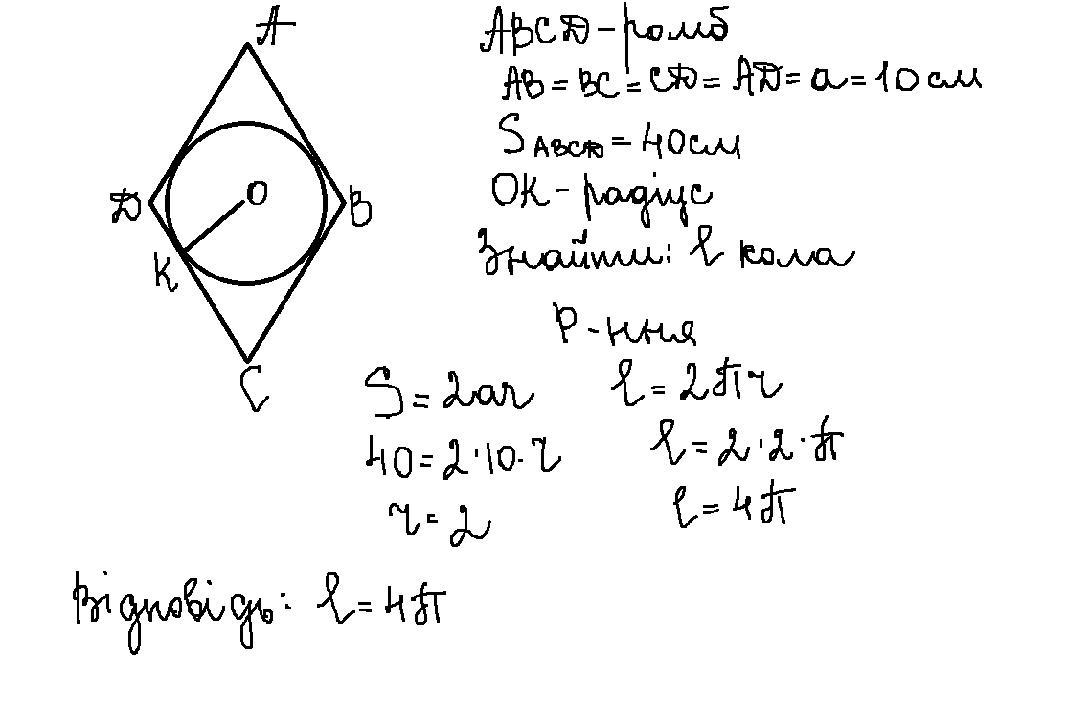 A
Д
O
B
K
C
ABCД - ромб
AB = BC = CД = AД = a = 10 см
S ABCД = 40 см
OK - радіус
Знайти: l кола
Р-ння
S = 2ar
l = 2πr
40 = 2·10·r
l = 2·2·π
r = 2
l = 4π
Відповідь: l = 4π